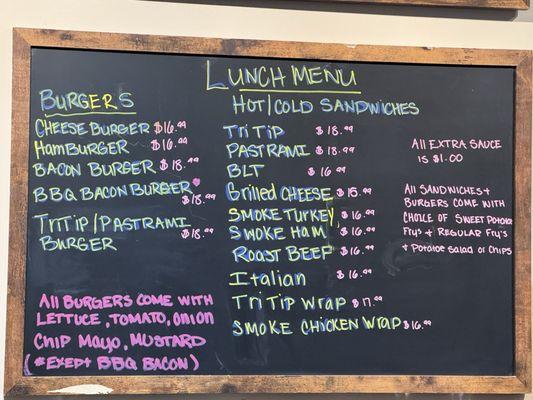 LUNCH MENU
BURGERS
CHEESE BURGER $16.99
HAMBURGER $16.99
BACON BURGER $18.99
BBQ BACON BURGER $18.99
TRITIP/PASTRAMI BURGER $18.99
ALL BURGERS COME WITH
LETTUCE, TOMATO, ONION
CHIP MAYO, MUSTARD
(*EXEPT BBQ BACON)
HOT/COLD SANDWICHES
TRITIP $18.99
PASTRAMI $18.99
BLT $16.99
GRILLED CHEESE $15.99
SMOKE TURKEY $16.99
SMOKE HAM $16.99
ROAST BEEF $16.99
ITALIAN $16.99
TRITIP WRAP $17.99
SMOKE CHICKEN WRAP $16.99
All EXTRA SAUCE
IS $1.00
All SANDWICHES +
BURGERS COME WITH
CHOICE OF SWEET POTATOE
FRYS + REGULAR FRY'S
+ POTATOE SALAD OR CHIPS